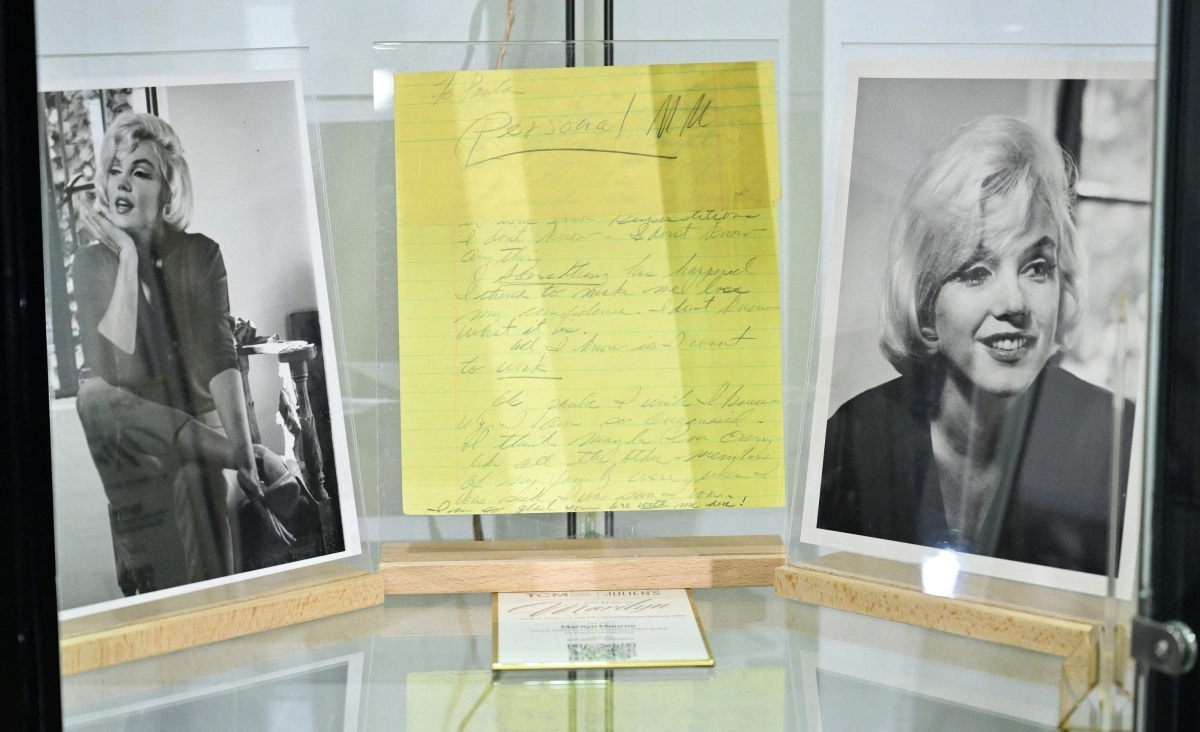 To Paula
Personal MM
Superstitions
I dont know - I dont know
anything
Something has happened
I think to make me lose
my confidence. I dont know
what it is.
all I know is I want
to work
Oh paula I wish I knew
why I am so anguished.
I think maybe I'm crazy
like all the other members
of my family were, when I
was sick I was sure I was.
I'm so glad you are with me here!
TCM JULIEN'S
Marilyn
Marilyn Monroe